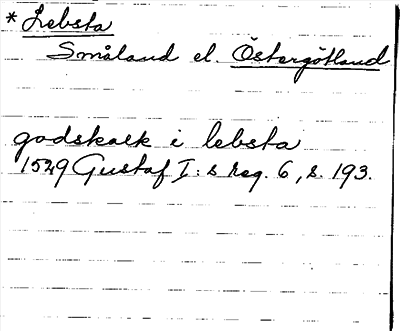 * Lebsta
Småland el. Östergötland
godskalk i lebsta
1529 Gustaf I:s reg. 6, s. 193.